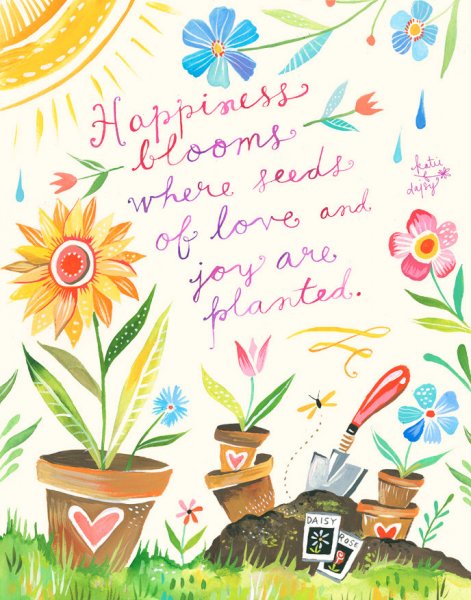 Happiness
blooms
where seeds
of love and
joy are
planted.
katie
daisy
DAISY
ROSE